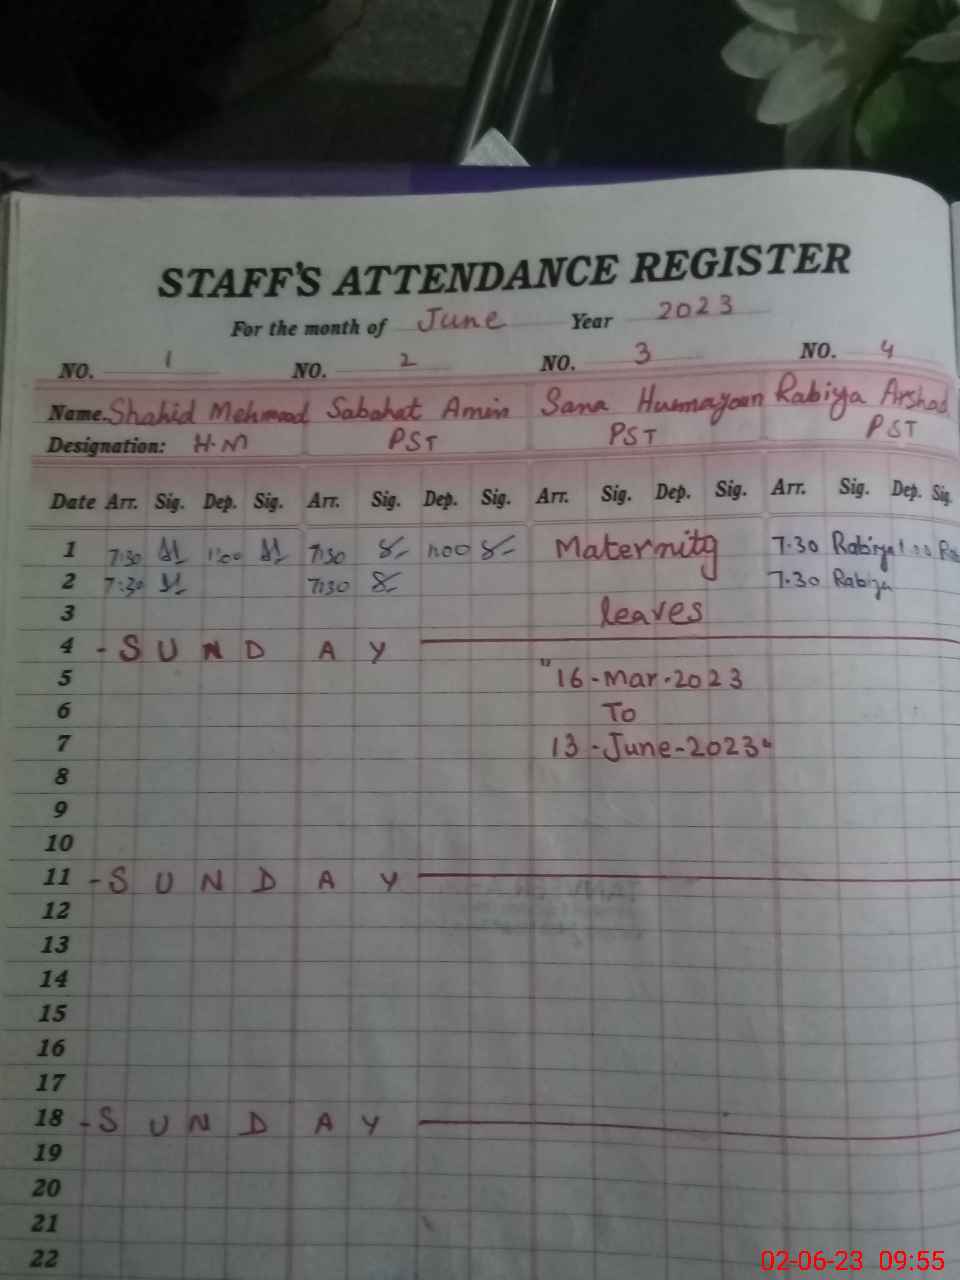 STAFF'S ATTENDANCE REGISTER
For the month of June Year 2023
NO. 1 NO. 2 NO. 3 NO. 4
Name. Shahid Mehmood Sabahat Amin Sana Humayoun Rabiya Arshad
Designation: H.M PST PST PST
Date Arr. Sig. Dep. Sig. Arr. Sig. Dep. Sig. Arr. Sig. Dep. Sig. Arr. Sig. Dep. Sig.
1 7:30 1:00 7:30 1:00 Maternity 7.30 Rabiya
2 7:30 7:30 7.30 Rabiya
3 leaves
4 - SUNDAY
5 "16-Mar-2023
6 To
7 13-June-2023"
8
9
10
11 - SUNDAY
12
13
14
15
16
17
18 - SUNDAY
19
20
21
22
02-06-23 09:55